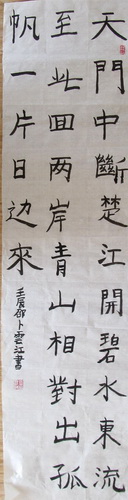 天門中斷楚江開碧水東流
至此回两岸青山相對出孤
帆一片日边來
壬辰卜雲江書